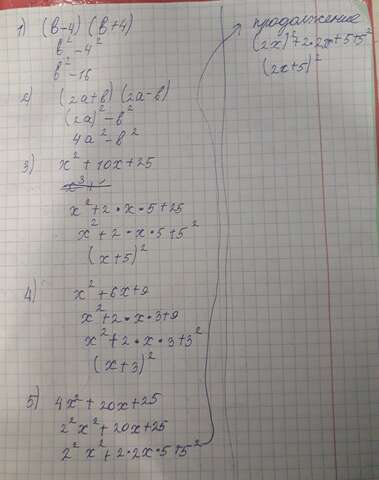 1) (b-4) (b+4)
b² - 4²
b² - 16
2) (2a+b) (2a-b)
(2a)² - b²
4a² - b²
3) x² + 10x + 25
x² + 2 • x • 5 + 25
x² + 2 • x • 5 + 5²
(x+5)²
4) x² + 6x + 9
x² + 2 • x • 3 + 9
x² + 2 • x • 3 + 3²
(x+3)²
5) 4x² + 20x + 25
2² x² + 20x + 25
2² x² + 2 • 2x • 5 + 5²
продолжение
(2x)² + 2 • 2x + 5 + 5²
(2x+5)²